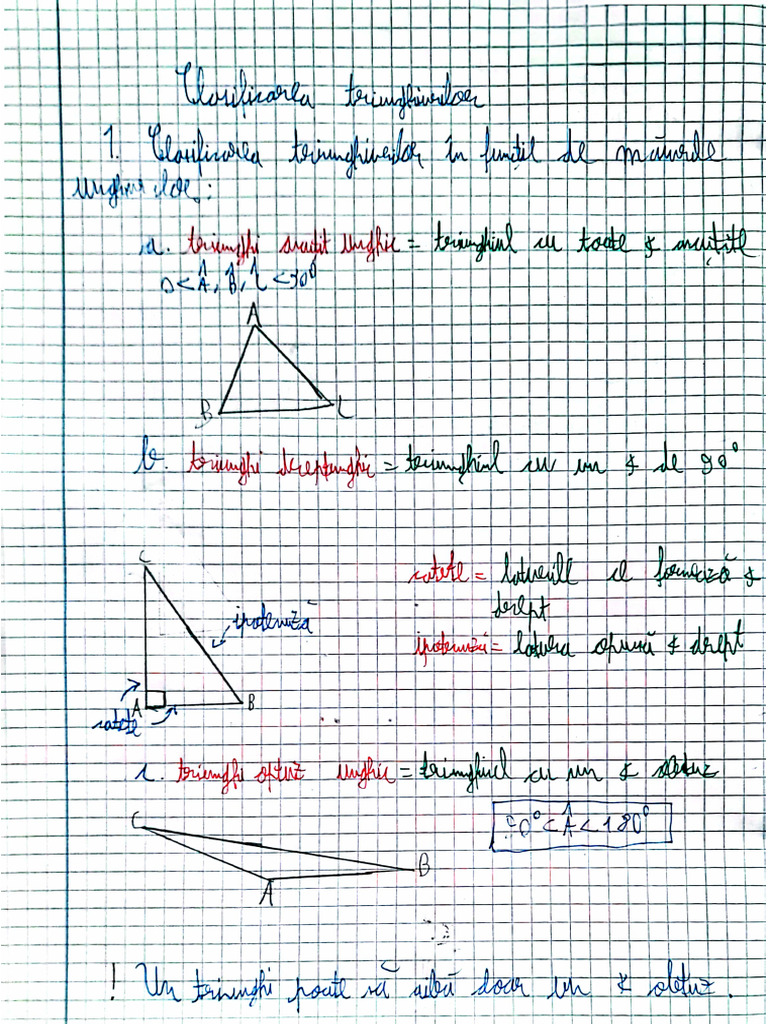 Clasificarea triunghiurilor
1. Clasificarea triunghiurilor în funcție de măsurile
unghiurilor:
a. triunghi ascuțit unghic = triunghiul cu toate ∢ ascuțite
0 < Â, B̂, Ĉ < 90°
A
B C
b. triunghi dreptunghic = triunghiul cu un ∢ de 90°
C
catete = laturile ce formează ∢
drept
ipotenuză
ipotenuză = latura opusă ∢ drept
A B
catete
c. triunghi obtuz unghic = triunghiul cu un ∢ obtuz
C
90° < Â < 180°
B
A
! Un triunghi poate să aibă doar un ∢ obtuz.